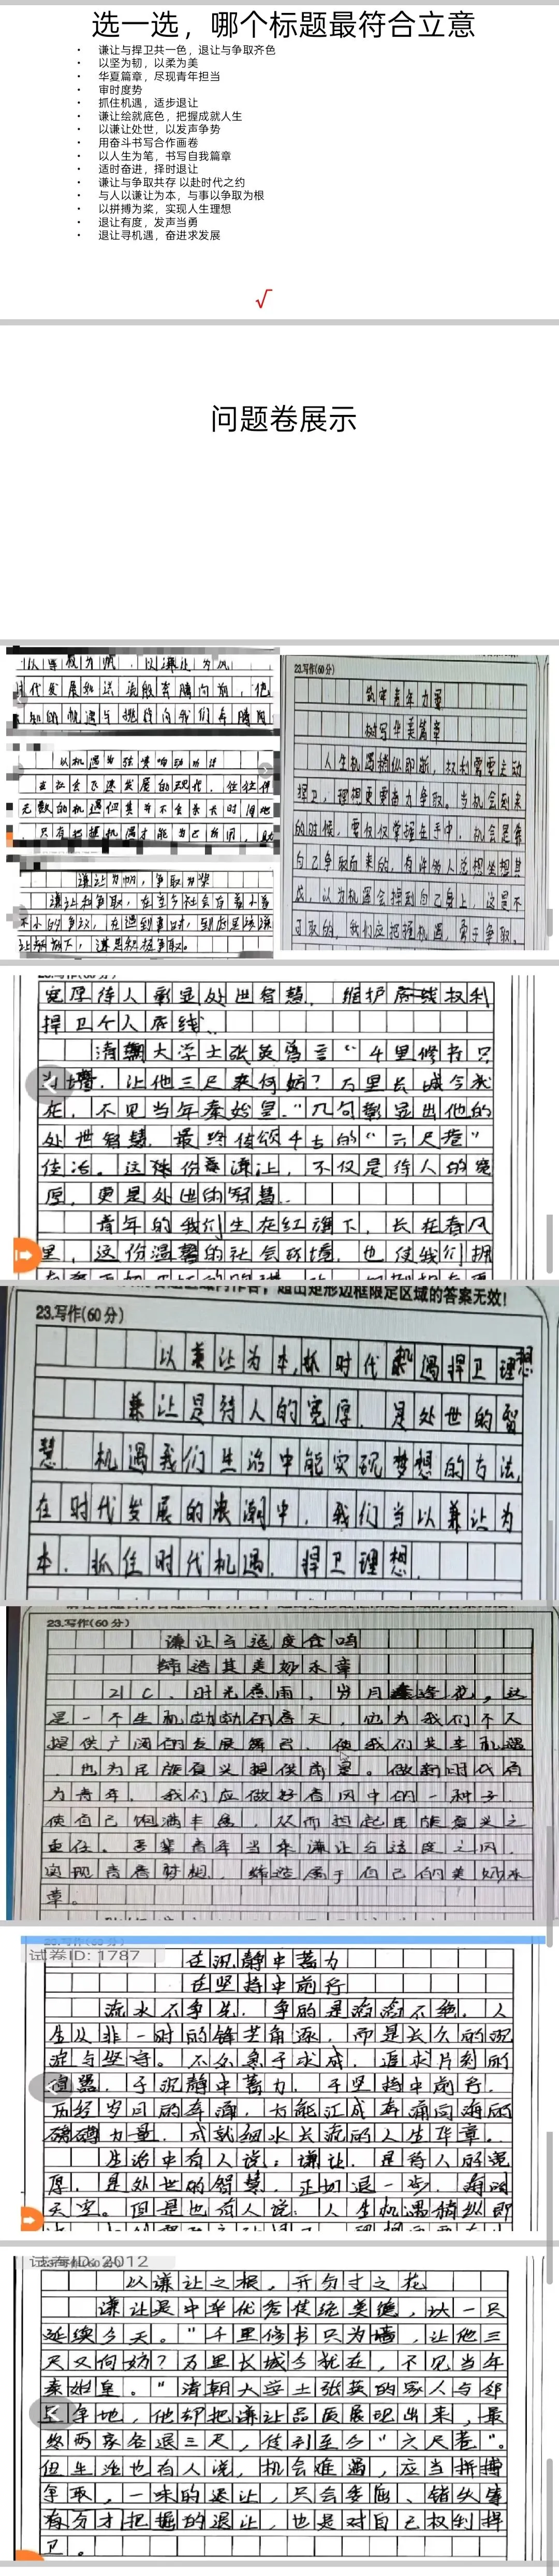 选一选，哪个标题最符合立意
• 谦让与捍卫共一色，退让与争取齐色
• 以坚为韧，以柔为美
• 华夏篇章，尽现青年担当
• 审时度势
• 抓住机遇，适步退让
• 谦让绘就底色，把握成就人生
• 以谦让处世，以发声争势
• 用奋斗书写合作画卷
• 以人生为笔，书写自我篇章
• 适时奋进，择时退让
• 谦让与争取共存 以赴时代之约
• 与人以谦让为本，与事以争取为根
• 以拼搏为桨，实现人生理想
• 退让有度，发声当勇
• 退让寻机遇，奋进求发展
√
问题卷展示
以机遇为弦奏响
在社会飞速发展的现代，往往伴
无数的机遇但其并不会永久时间地
只有把握机遇才能为己所用，
谦让为帆，争取为桨
谦让和争取，在至今社会有着小看
不小的争议，在遇到事时，到底是该谦
22.写作(60分)
筑牢青年力量
树写华美篇章
人生机遇稍纵即逝，权利需要主动
捍卫，理想更需奋力争取。当机会到来
的时候，需仅仅掌握在手中，机会是靠
自己争取而来的，有许多人总想坐想其
成，以为机遇会掉到自己身上，这是不
可取的，我们应把握机遇，勇于争取。
宽厚待人彰显处世智慧，维护底线权利
捍卫个人底线。
清朝大学士张英曾言“千里修书只
为墙，让他三尺又何妨？万里长城今犹
在，不见当年秦始皇。”几句彰显出他的
处世智慧，最终传颂千古的“六尺巷”
佳话。这份谦让，不仅是待人的宽
厚，更是处世的智慧。
青年的我们生在红旗下，长在春风
里，这份温馨的社会环境，也使我们拥
超出矩形边框限定区域的答案无效!
23.写作(60分)
以兼让为本,抓时代机遇捍卫理想
兼让是待人的宽厚，是处世的智
慧。机遇我们生治中能实现梦想的方法，
在时代发展的浪潮中，我们当以兼让为
本，抓住时代机遇，捍卫理想。
23.写作(60分)
谦让与适度合鸣
缔造其美妙永章
21C，时光春雨，岁月逢花，这
是一个生机勃勃的春天，他为我们不久
提供广阔的发展舞台，使我们共享机遇
，也为民族复兴提供前景。做新时代有
为青年，我们应做好春风中的一种子，
使自己饱满丰盈，从而担起民族复兴之
重任。吾辈青年当乘谦让与适度之风，
实现青春梦想，缔造属于自己的美妙永
章。
试卷ID: 1787
在沉静中蓄力
在坚持中前行
流水不争先，争的是滔滔不绝，人
生从非一时的锋芒角逐，而是长久的沉
淀与坚守。不必急于求成，追求片刻的
喧嚣，于沉静中蓄力，于坚持中前行，
历经岁月的奔涌，方能汇成奔涌向海的
磅礴力量，成就细水长流的人生华章。
生活中有人说：谦让，是待人的宽
厚，是处世的智慧，正切退一步，海阔
天空。但是也有人说：人生机遇稍纵即
试卷ID: 2012
以谦让之根，开分寸之花
谦让是中华优秀传统美德，从一只
延续今天。“千里修书只为墙，让他三
尺又何妨？万里长城今犹在，不见当年
秦始皇。”清朝大学士张英的家人与邻
居争地，他却把谦让品质展现出来，最
终两家各退三尺，传到至今“六尺巷”。
但生活也有人说，机会难遇，应当拼搏
争取，一味的退让，只会委屈、错失
有分寸把握的退让，也是对自己权利捍
卫。